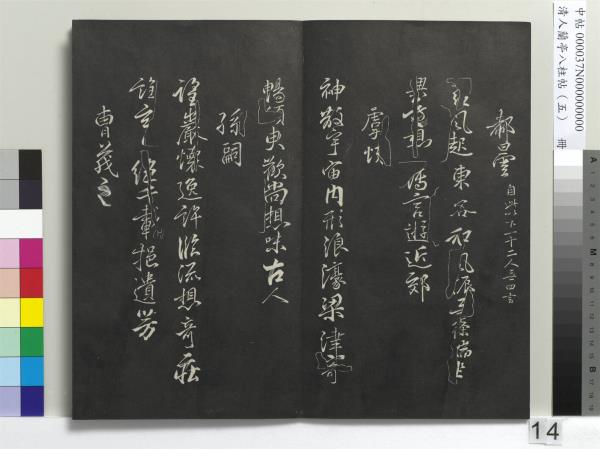 中帖 000037N000000000
清人蘭亭八柱帖（五） 冊
郗曇
風起東谷和風振柔條端坐
興遠想薄言遊近郊
虞悅
神散宇宙內形浪濠梁津寄
暢須臾歡尚想味古人
孫嗣
望巖懷逸許臨流想奇莊
絕千載挹遺芳
曹茂之
14